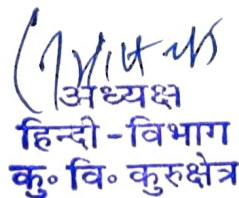 अध्यक्ष
हिन्दी - विभाग
कु० वि० कुरुक्षेत्र